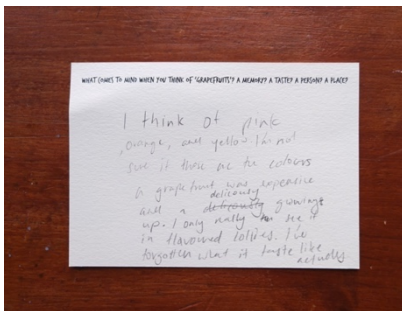 WHAT COMES TO MIND WHEN YOU THINK OF 'GRAPEFRUITS'? A MEMORY? A TASTE? A PERSON? A PLACE?
I think of pink
, orange, and yellow I'm not
sure if these are the colours
a grapefruit was expensive
deliciously
and a deliciously growing
up. I only really see it
in flavoured lollies. I've
forgotten what it taste like
actually.